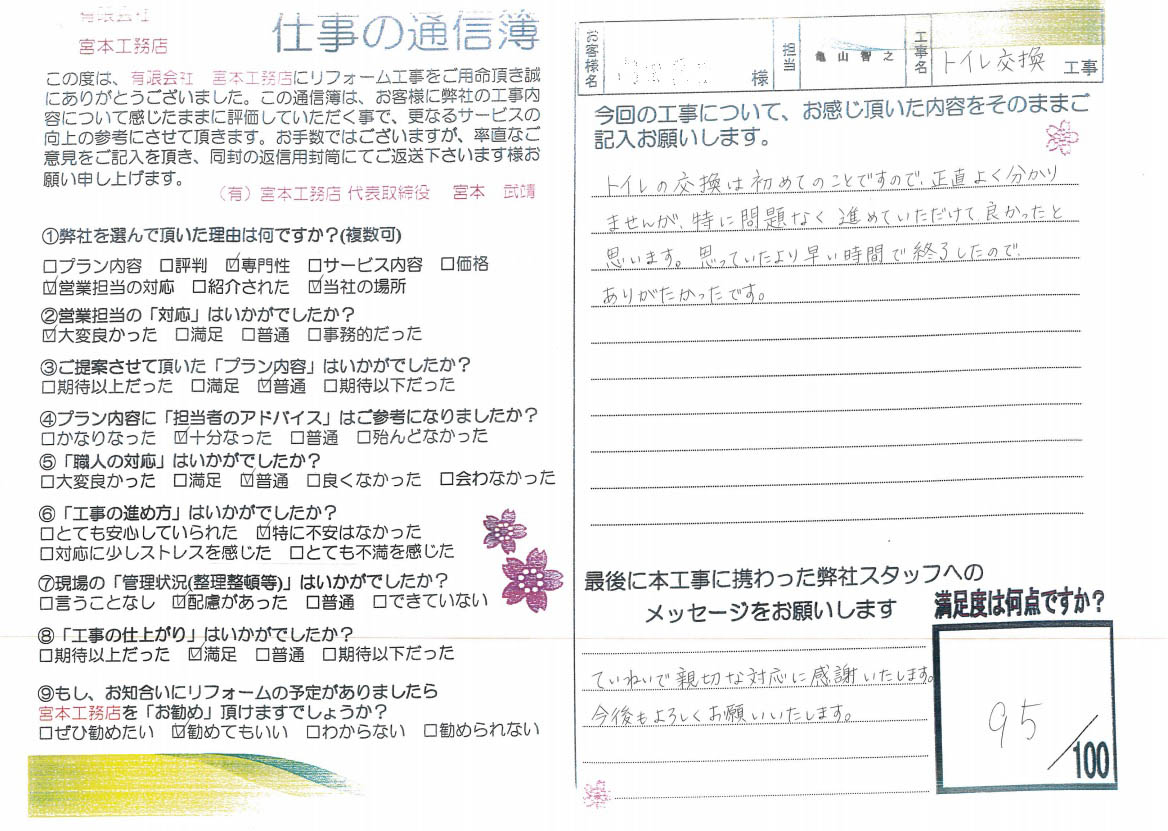 有限会社
宮本工務店
仕事の通信簿
この度は、有限会社 宮本工務店にリフォーム工事をご用命頂き誠
にありがとうございました。この通信簿は、お客様に弊社の工事内
容について感じたままに評価していただく事で、更なるサービスの
向上の参考にさせて頂きます。お手数ではございますが、率直なご
意見をご記入を頂き、同封の返信用封筒にてご返送下さいます様お
願い申し上げます。
(有)宮本工務店 代表取締役 宮本 武靖
①弊社を選んで頂いた理由は何ですか?(複数可)
□プラン内容 □評判 ☑専門性 □サービス内容 □価格
☑営業担当の対応 □紹介された ☑当社の場所
②営業担当の「対応」はいかがでしたか?
☑大変良かった □満足 □普通 □事務的だった
③ご提案させて頂いた「プラン内容」はいかがでしたか?
□期待以上だった □満足 ☑普通 □期待以下だった
④プラン内容に「担当者のアドバイス」はご参考になりましたか?
□かなりなった ☑十分なった □普通 □殆んどなかった
⑤「職人の対応」はいかがでしたか?
□大変良かった □満足 ☑普通 □良くなかった □会わなかった
⑥「工事の進め方」はいかがでしたか?
□とても安心していられた ☑特に不安はなかった
□対応に少しストレスを感じた □とても不満を感じた
⑦現場の「管理状況(整理整頓等)」はいかがでしたか?
□言うことなし ☑配慮があった □普通 □できていない
⑧「工事の仕上がり」はいかがでしたか?
□期待以上だった ☑満足 □普通 □期待以下だった
⑨もし、お知合いにリフォームの予定がありましたら
宮本工務店を「お勧め」頂けますでしょうか?
□ぜひ勧めたい ☑勧めてもいい □わからない □勧められない
お客様名 様 担当 亀山智之 工事名 トイレ交換 工事
今回の工事について、お感じ頂いた内容をそのままご
記入お願いします。
トイレの交換は初めてのことですので、正直よく分かり
ませんが、特に問題なく進めていただけて良かったと
思います。思っていたより早い時間で終了したので、
ありがたかったです。
最後に本工事に携わった弊社スタッフへの
メッセージをお願いします
ていねいで親切な対応に感謝いたします。
今後もよろしくお願いいたします。
満足度は何点ですか?
95/100